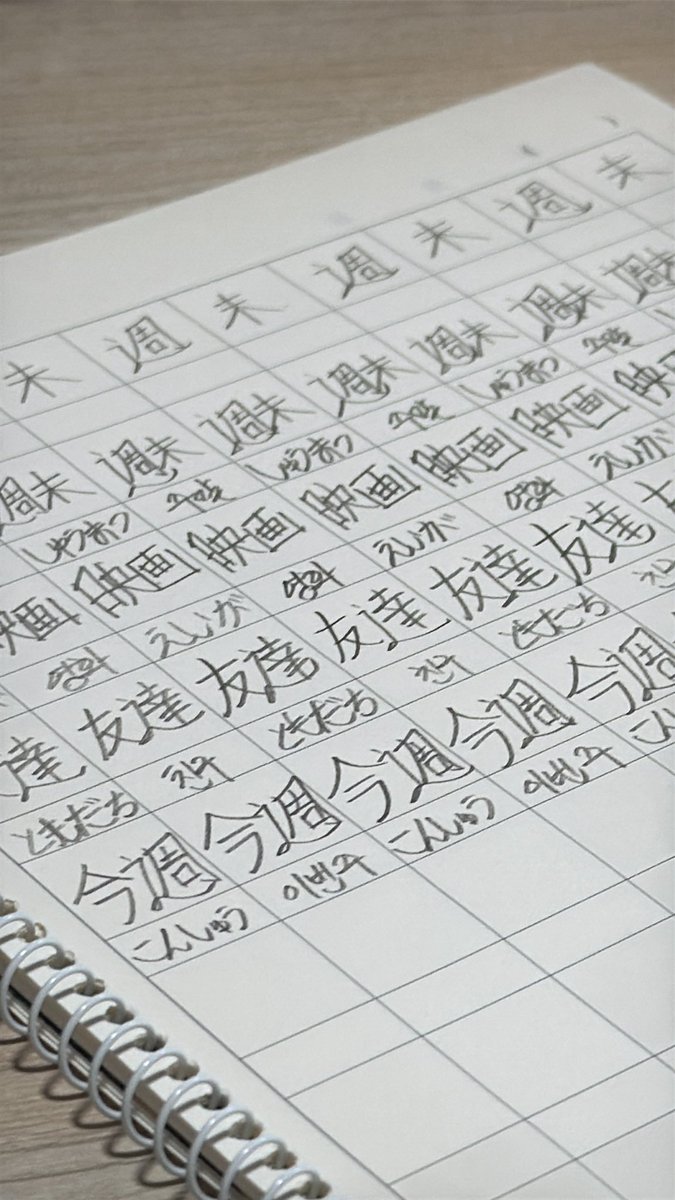 末 週 末 週 末 週 末
週末 週末 週末 週末 週末 週末 週末
しゅうまつ 주말 しゅうまつ 주말 しゅうまつ 주말 し
映画 映画 映画 映画 映画 映画 映画
영화 えいが 영화 えいが 영화 えいが
達 友達 友達 友達 友達 友達 友
ともだち 친구 ともだち 친구 ともだち 친
今週 今週 今週 今週 今週
こんしゅう 이번주 こんしゅう 이번주 こん